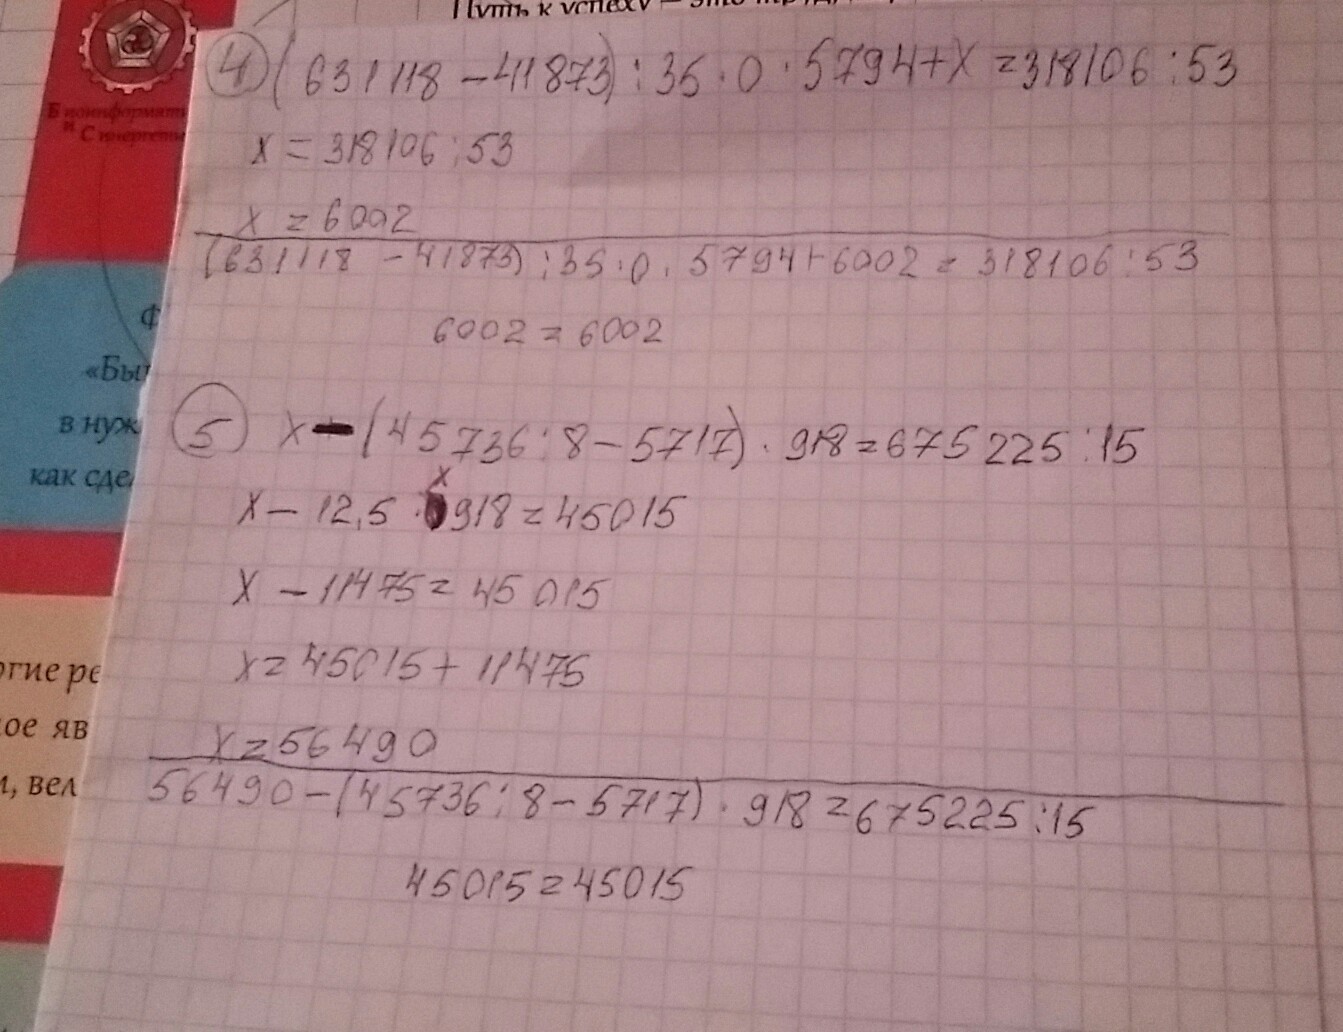 Путь к успеху – это
Биоинформати
и Синергети
Ф
«Бы
в нуж
как сде
огие ре
ое яв
, вел
4 (631118 – 41873) : 35 · 0 · 5794 + x = 318106 : 53
x = 318106 : 53
x = 6002
(631118 – 41873) : 35 · 0 · 5794 + 6002 = 318106 : 53
6002 = 6002
5 x – (45736 : 8 – 5717) · 918 = 675225 : 15
x – 12,5 · 918 = 45015
x – 11475 = 45015
x = 45015 + 11475
x = 56490
56490 – (45736 : 8 – 5717) · 918 = 675225 : 15
45015 = 45015